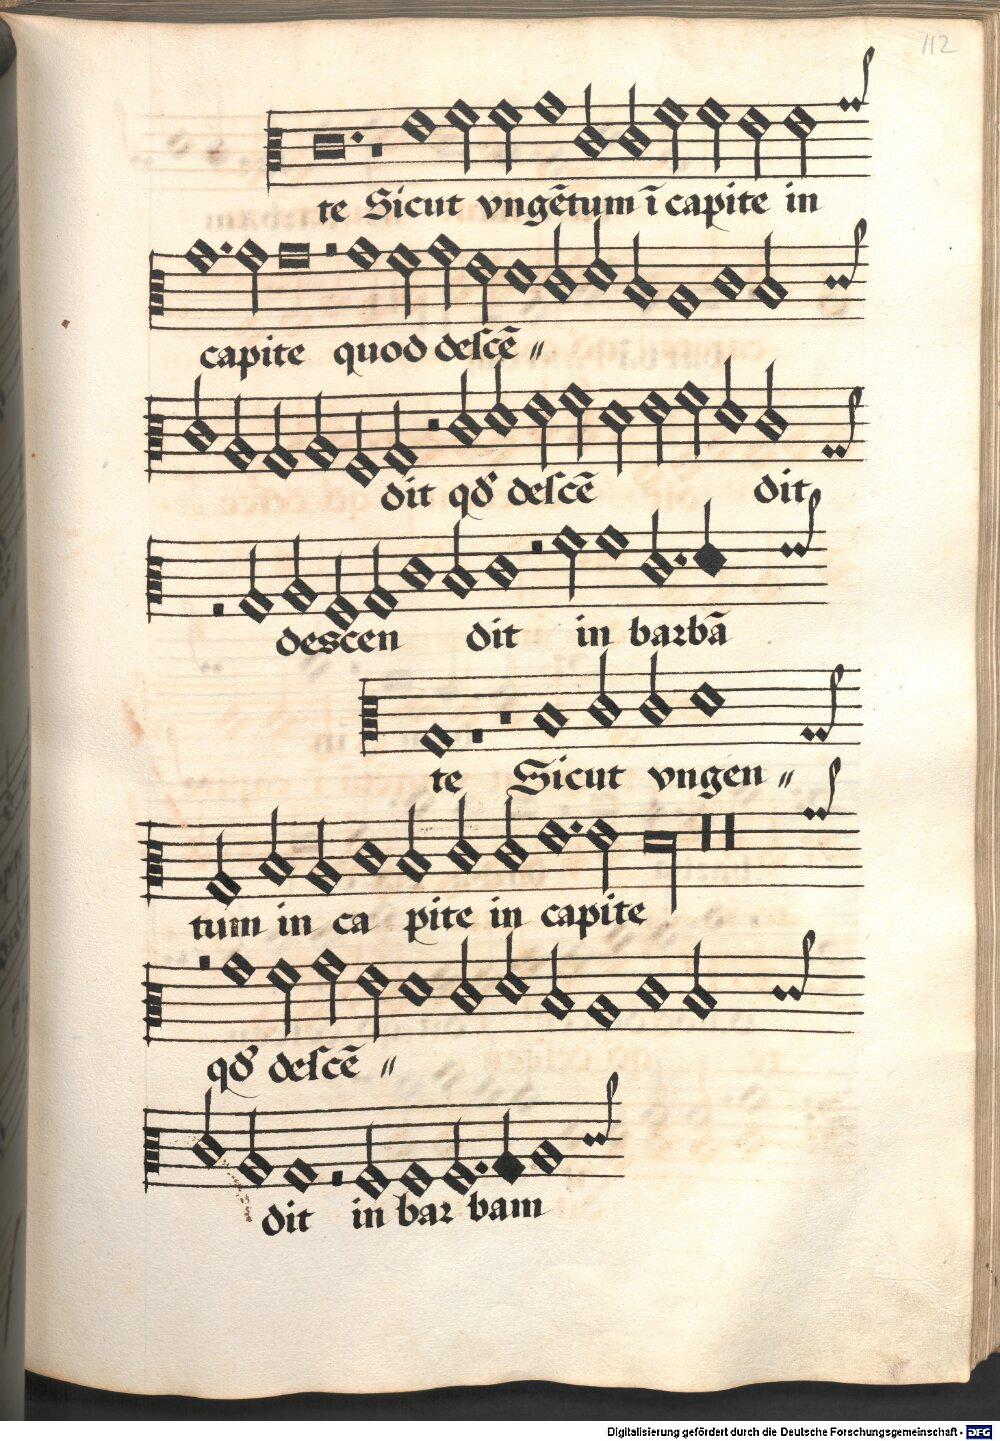 112
te Sicut vngētum ī capite in
capite quod descē〃
dit qđ descē dit
descen dit in barbā
te Sicut vngen〃
tum in ca pite in capite
qđ descē〃
dit in bar bam
Digitalisierung gefördert durch die Deutsche Forschungsgemeinschaft - DFG